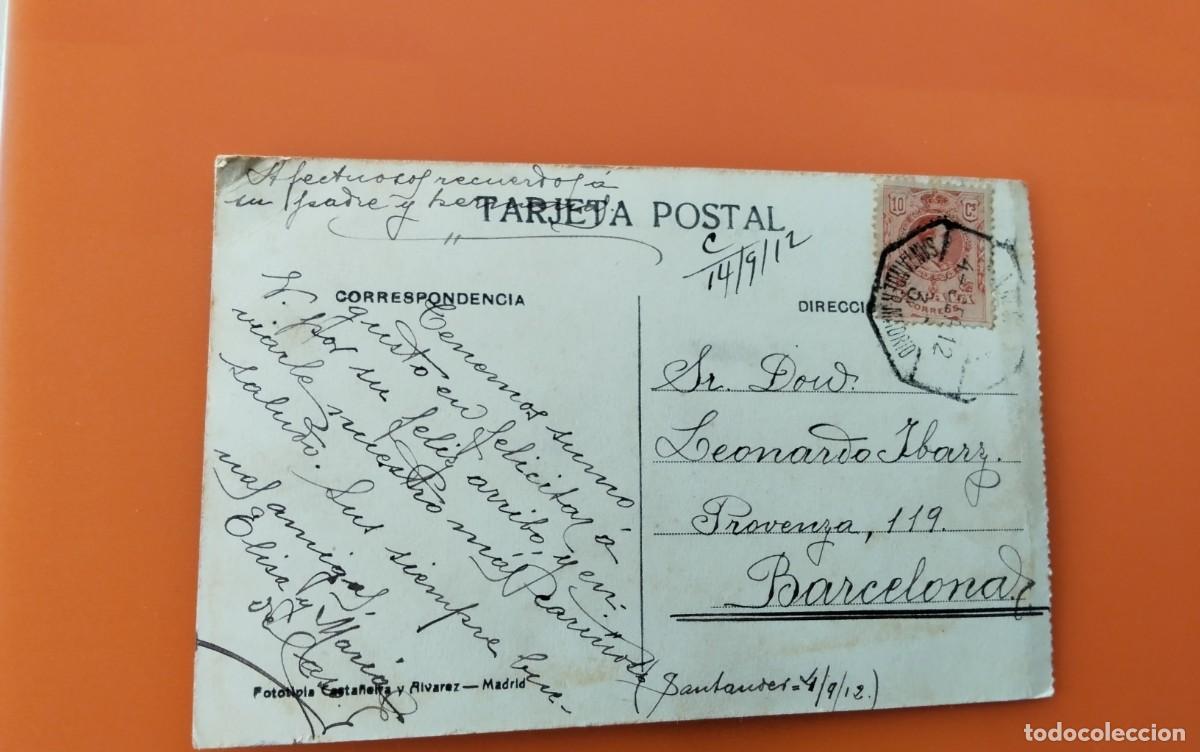 Afectuosos recuerdos á
su padre y hermanas.
TARJETA POSTAL
C
14/9/12
10 Cs
CORREOS
SANTANDER MADRID
12
CORRESPONDENCIA
DIRECCIÓ
Tenemos sumo
gusto en felicitar á
V. por su feliz arribo, y en-
viarle nuestro más cariñoso
saludo. Sus siempre bue-
nas amigas,
Elisa y María
Sr. Don.
Leonardo Ibarz.
Provenza, 119.
Barcelona.
(Santander = 4/9/12.)
Fototipia Castañeira y Álvarez — Madrid
todocoleccion